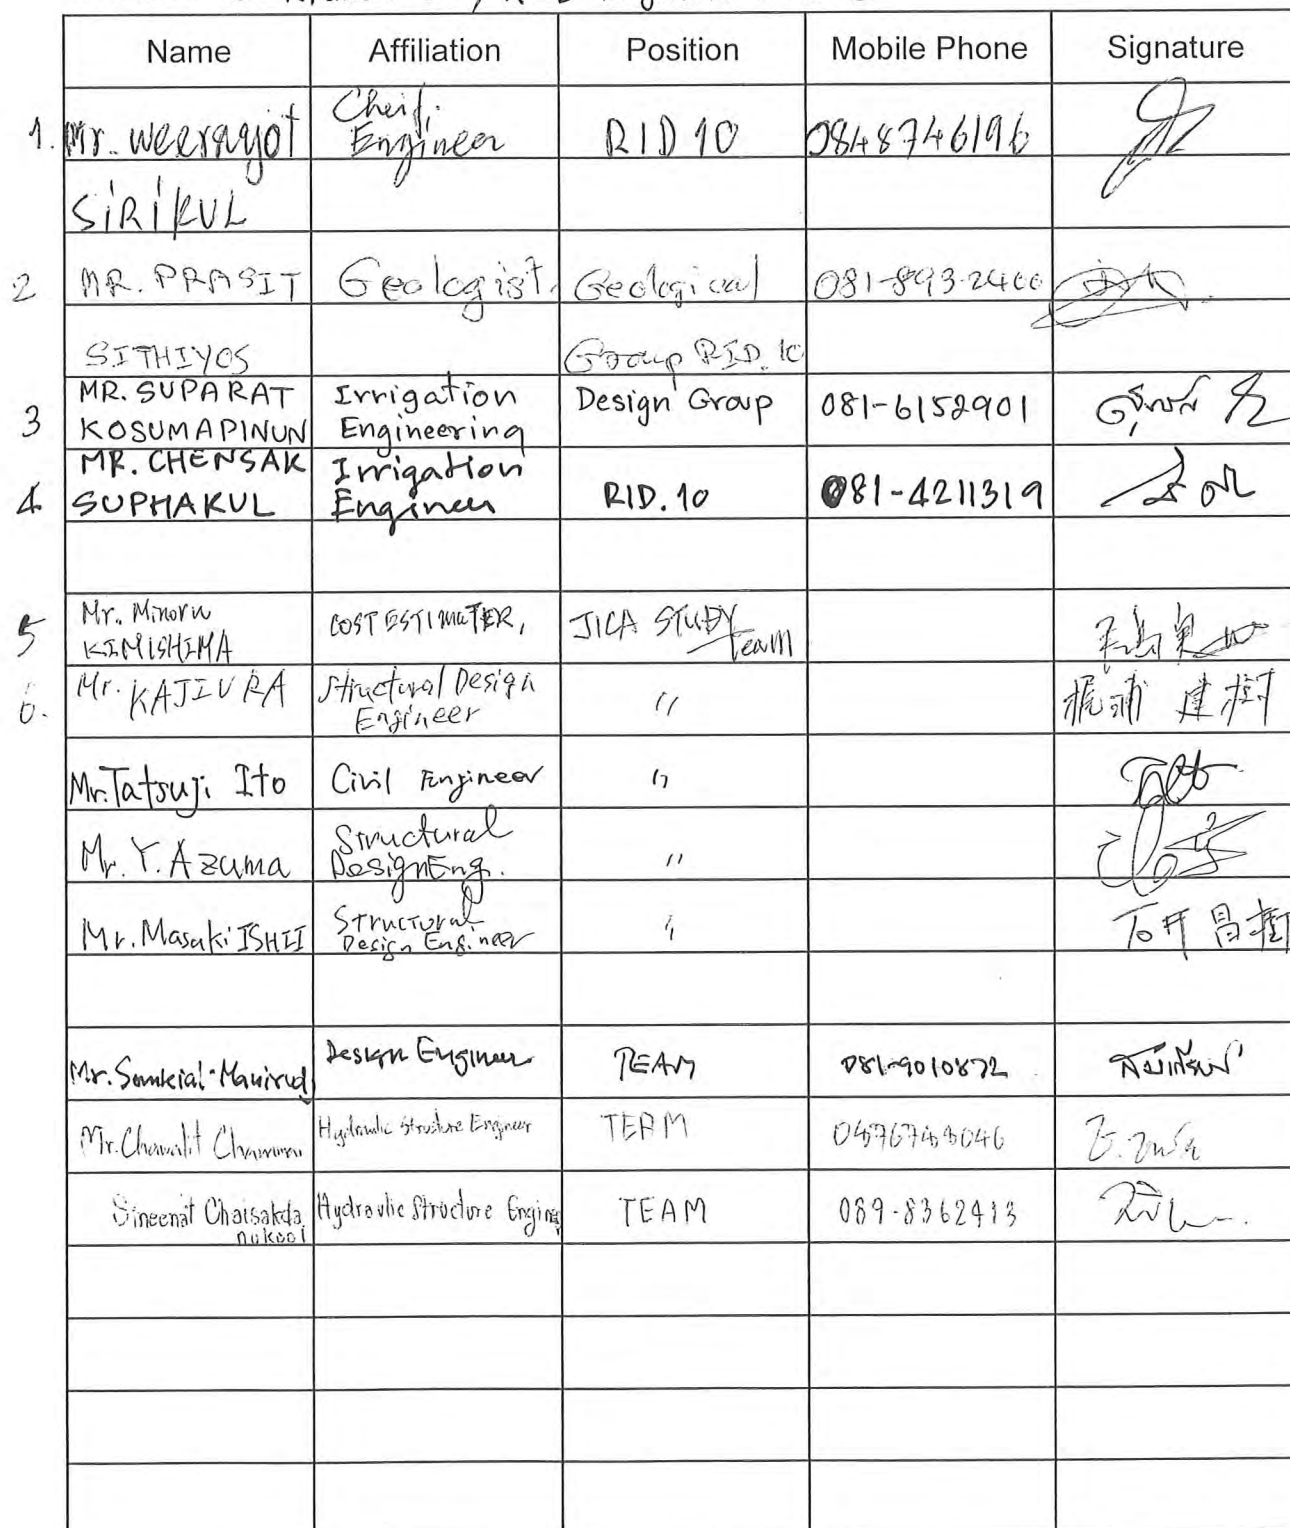 Name Affiliation Position Mobile Phone Signature
1. Mr. weerayot Cheif. Engineer RID 10 0848746196
SIRIKUL
2 MR. PRASIT Geologist. Geological 081-893-2400
SITHIYOS Group RID. 10
3 MR. SUPARAT KOSUMAPINUN Irrigation Engineering Design Group 081-6152901
4 MR. CHENSAK SUPHAKUL Irrigation Engineer RID. 10 081-4211319
5 Mr. Minoru KIMISHIMA COST ESTIMATER, JICA STUDY Team
6. Mr. KAJIURA Structural Design Engineer 〃 梶浦 建樹
Mr. Tatsuji Ito Civil Engineer 〃
Mr. Y. Azuma Structural Design Eng. 〃
Mr. Masaki ISHII Structural Design Engineer 〃 石井 昌樹
Mr. Somkial Manirud Design Engineer TEAM 081-9010872 สมเกียรติ
Mr. Chawalit Hydraulic Structure Engineer TEAM
Sineenat Chaisakda nukool Hydraulic Structure Engine TEAM 089-8362413